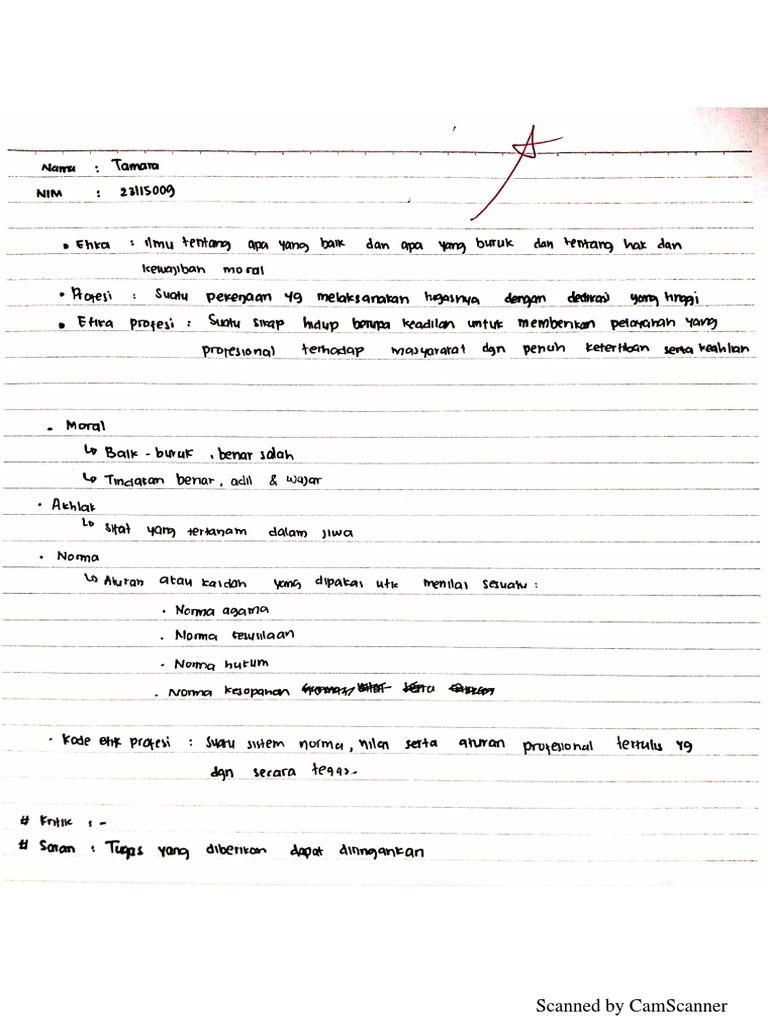 Nama : Tamara
NIM : 23115009
• Etika : Ilmu tentang apa yang baik dan apa yang buruk dan tentang hak dan
kewajiban moral
• Profesi : Suatu pekerjaan yg melaksanakan tugasnya dengan dedikasi yang tinggi
• Etika profesi : Suatu sikap hidup berupa keadilan untuk memberikan pelayanan yang
profesional terhadap masyarakat dgn penuh ketertiban serta keahlian
• Moral
↳ Baik - buruk , benar salah
↳ Tindakan benar, adil & wajar
• Akhlak
↳ Sifat yang tertanam dalam jiwa
• Norma
↳ Aturan atau kaidah yang dipakai utk menilai sesuatu :
• Norma agama
• Norma kesusilaan
• Norma hukum
• Norma kesopanan
• Kode etik profesi : Suatu sistem norma, nilai serta aturan profesional tertulis yg
dgn secara tegas.
# Kritik : -
# Saran : Tugas yang diberikan dapat diringankan
Scanned by CamScanner